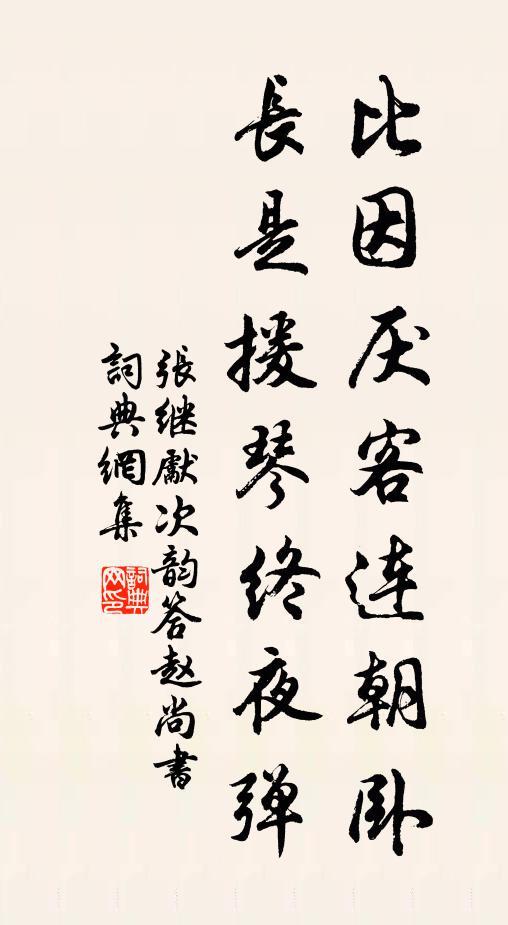 比因厌客连朝卧
長是援琴终夜弹
張继献次韵答赵尚書
詞典網集
詞典網印